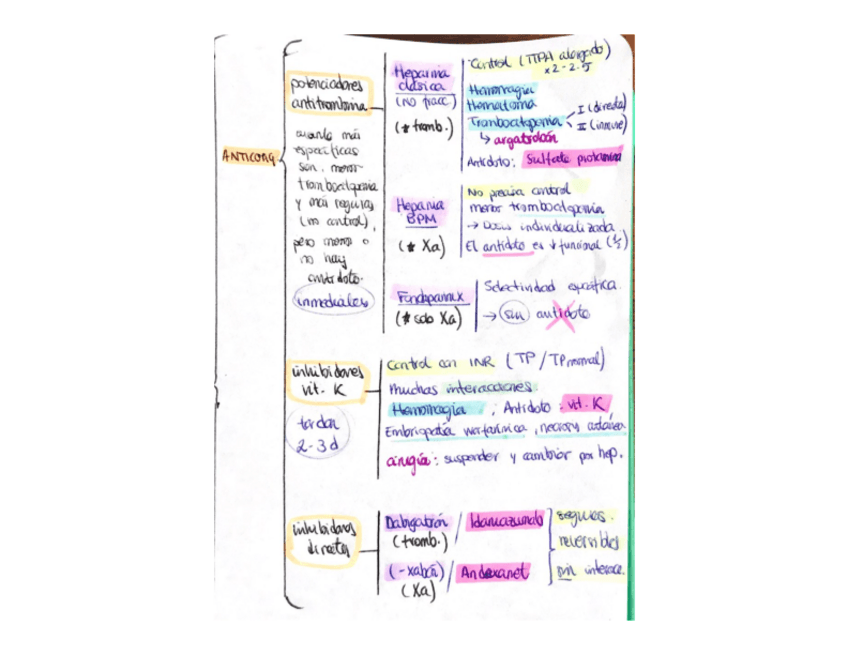 ANTICOAG
potenciadores
antitrombina
cuanto más
específicas
son, menor
trombocitopenia
y más regulas
(no control),
pero menos o
no hay
antídoto.
inmediatos
Heparina
clásica
(no fracc.)
(* tromb.)
Control (TTPA alargado)
x2-2.5
Hemorragia
Hematoma
Trombocitopenia
I (directa)
II (inmune)
↳ argatrobán
Antídoto: Sulfato protamina
Heparina
BPM
(* Xa)
No precisa control
menor trombocitopenia
→ Dosis individualizada
El antídoto es ↓ funcional (½)
Fondaparinux
(* solo Xa)
Selectividad específica.
→ sin antídoto
inhibidores
vit. K
tardan
2-3 d
Control con INR (TP/TP normal)
Muchas interacciones
Hemorragia ; Antídoto: vit. K
Embriopatía warfarínica, necrosis cutánea
cirugía: suspender y cambiar por hep.
inhibidores
directos
Dabigatrán / Idarucizumab
(tromb.)
(-xabán) / Andexanet
(Xa)
seguros.
reversibles
min interacc.